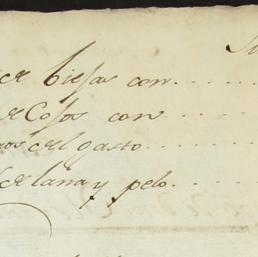 de biesas con
de Cosos con
del gasto
de lana y pelo